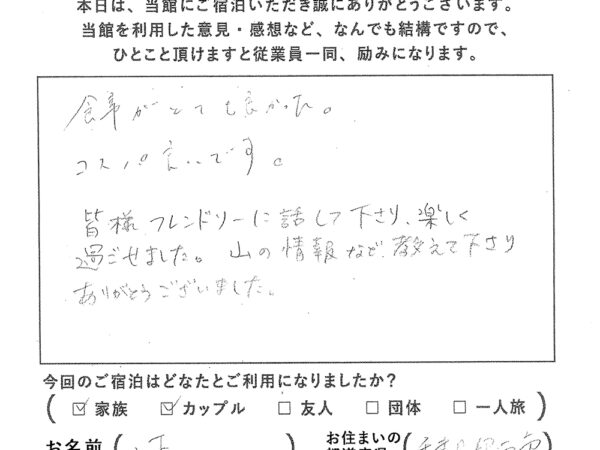 本日は、当館にご宿泊いただき誠にありがとうございます。
当館を利用した意見・感想など、なんでも結構ですので、
ひとこと頂けますと従業員一同、励みになります。
食事がとても良かった。
コスパ良いです。
皆様フレンドリーに話して下さり、楽しく
過ごせました。山の情報など、教えて下さり
ありがとうございました。
今回のご宿泊はどなたとご利用になりましたか?
(☑家族 ☑カップル □友人 □団体 □一人旅)
お名前( ) お住まいの(